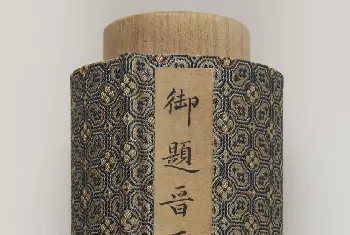 御題晉